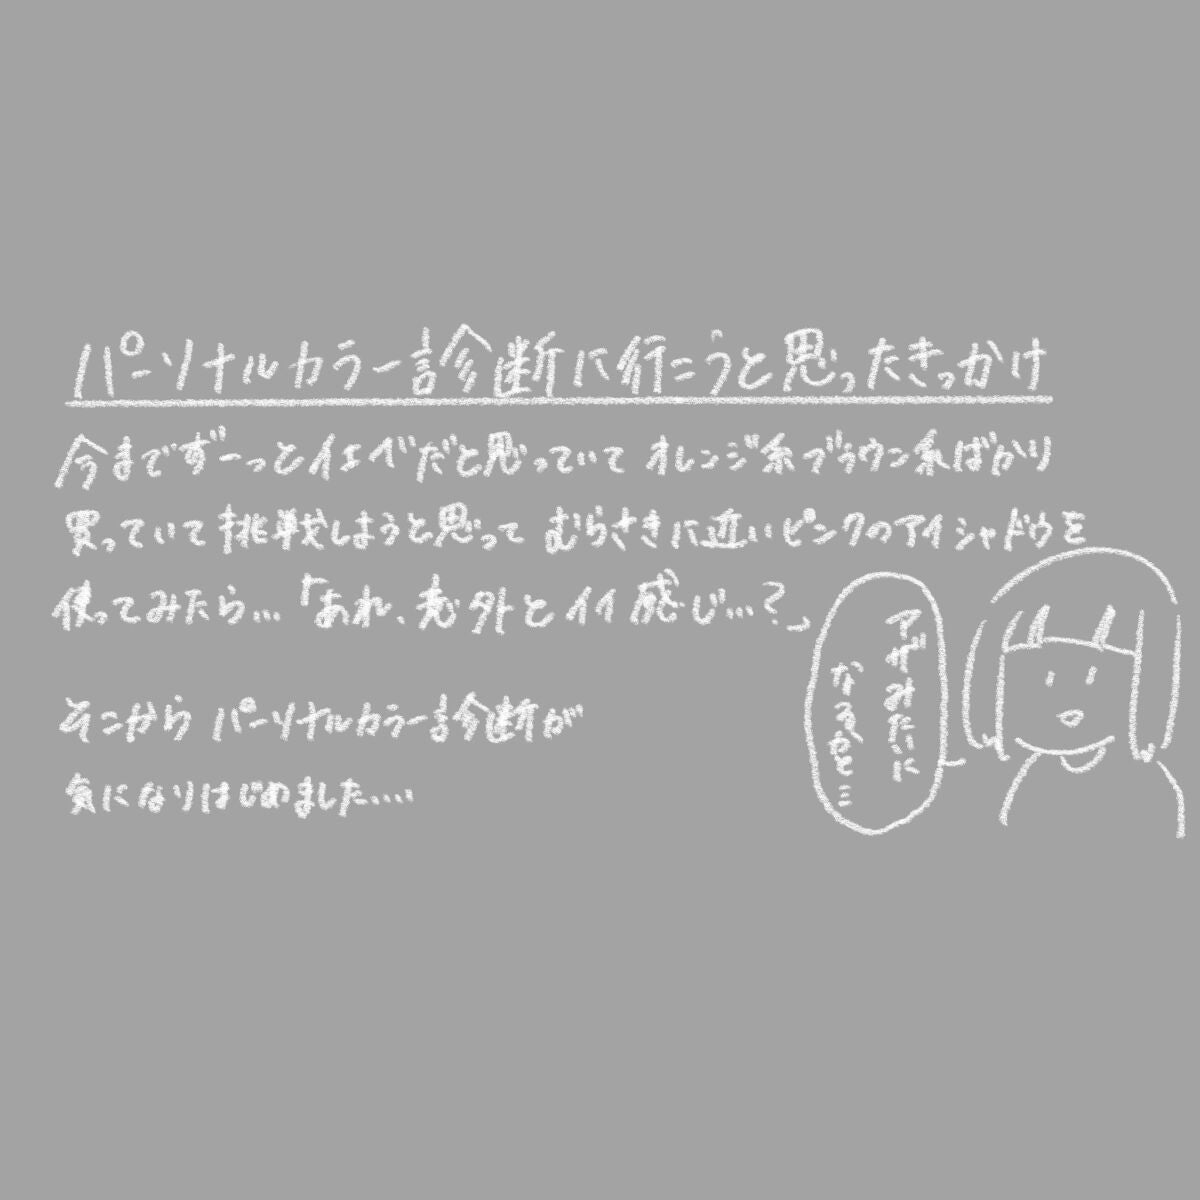 パーソナルカラー診断に行こうと思ったきっかけ
今までずーっとイエベだと思っていて オレンジ系ブラウン系ばかり
買っていて挑戦しようと思って むらさきに近いピンクのアイシャドウを
使ってみたら…「あれ、意外とイイ感じ…?」
そこから パーソナルカラー診断が
気になりはじめました….
アザみたいに
なるかと…